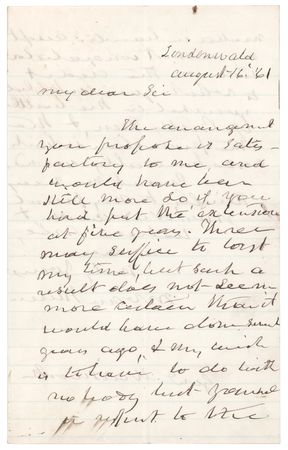 Lindenwald
August 16' 61
My dear Sir
The arrangement
you propose is satis-
factory to me and
would have been
still more so, if you
had put the extension
at five years. Three
may suffice to last
my time, but such a
result does not seem
more certain than it
would have done some
years ago, & my wish
is to have to do with
nobody but yourself
to the